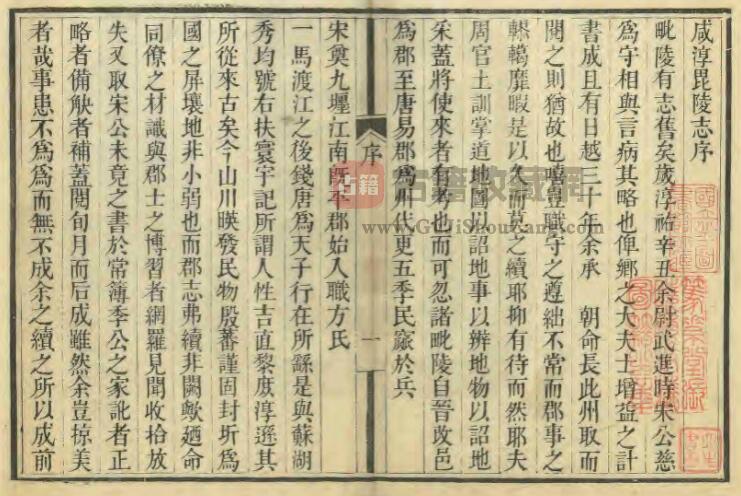 咸淳毘陵志序
毗陵有志舊矣歲淳祐辛丑余尉武進時宋公慈
爲守相與言病其略也俾鄉之大夫士增益之計
書成且有日越三十年余承 朝命長此州取而
閱之則猶故也嘻豈職守之遵絀不常而郡事之
轇轕靡暇是以久而莫之續耶抑有待而然耶夫
周官土訓掌道地圖以詔地事以辨地物以詔地
采蓋將使來者有考也而可忽諸毗陵自晉改邑
爲郡至唐易郡爲州代更五季民竄於兵
宋奠九壥江南旣平郡始入職方氏
一馬渡江之後錢唐爲天子行在所繇是與蘇湖
秀均號右扶寰宇記所謂人性吉直黎庶淳遜其
所從來古矣今山川暎發民物殷蕃謹固封圻爲
國之屏壤地非小弱也而郡志弗續非闕歟廼命
同僚之材識與郡士之博習者網羅見聞收拾放
失又取宋公未竟之書於常簿季公之家訛者正
略者備觖者補蓋閱旬月而后成雖然余豈掠美
者哉事患不爲爲而無不成余之續之所以成前
序
一
古籍
古籍收藏網
www.GuJiShouCang.com